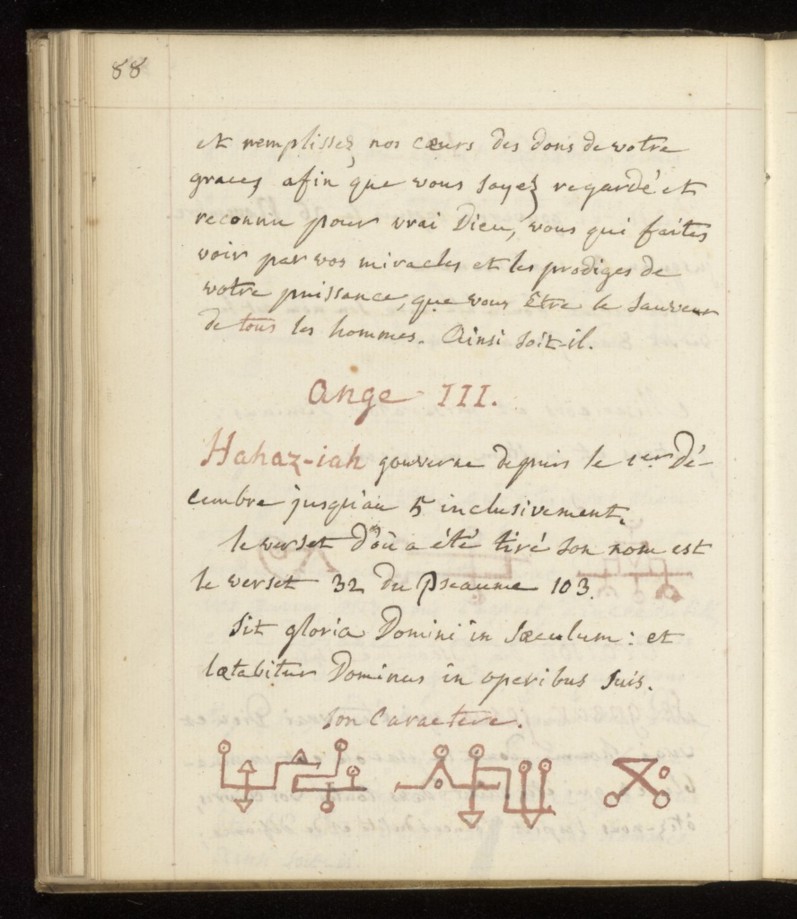 88
et remplissez nos cœurs des dons de votre
graces, afin que vous soyez regardé et
reconnu pour vrai Dieu, vous qui faites
voir par vos miracles et les prodiges de
votre puissance, que vous Être le Sauveur
de tous les hommes. Ainsi soit-il.
Ange III.
Hahaz-iah gouverne depuis le 1er Dé-
cembre jusqu'au 5 inclusivement.
le verset d'où a été tiré son nom est
le verset 32 du Pseaume 103.
Sit gloria Domini in sæculum : et
lætabitur Dominus in operibus suis.
Son Caractere.